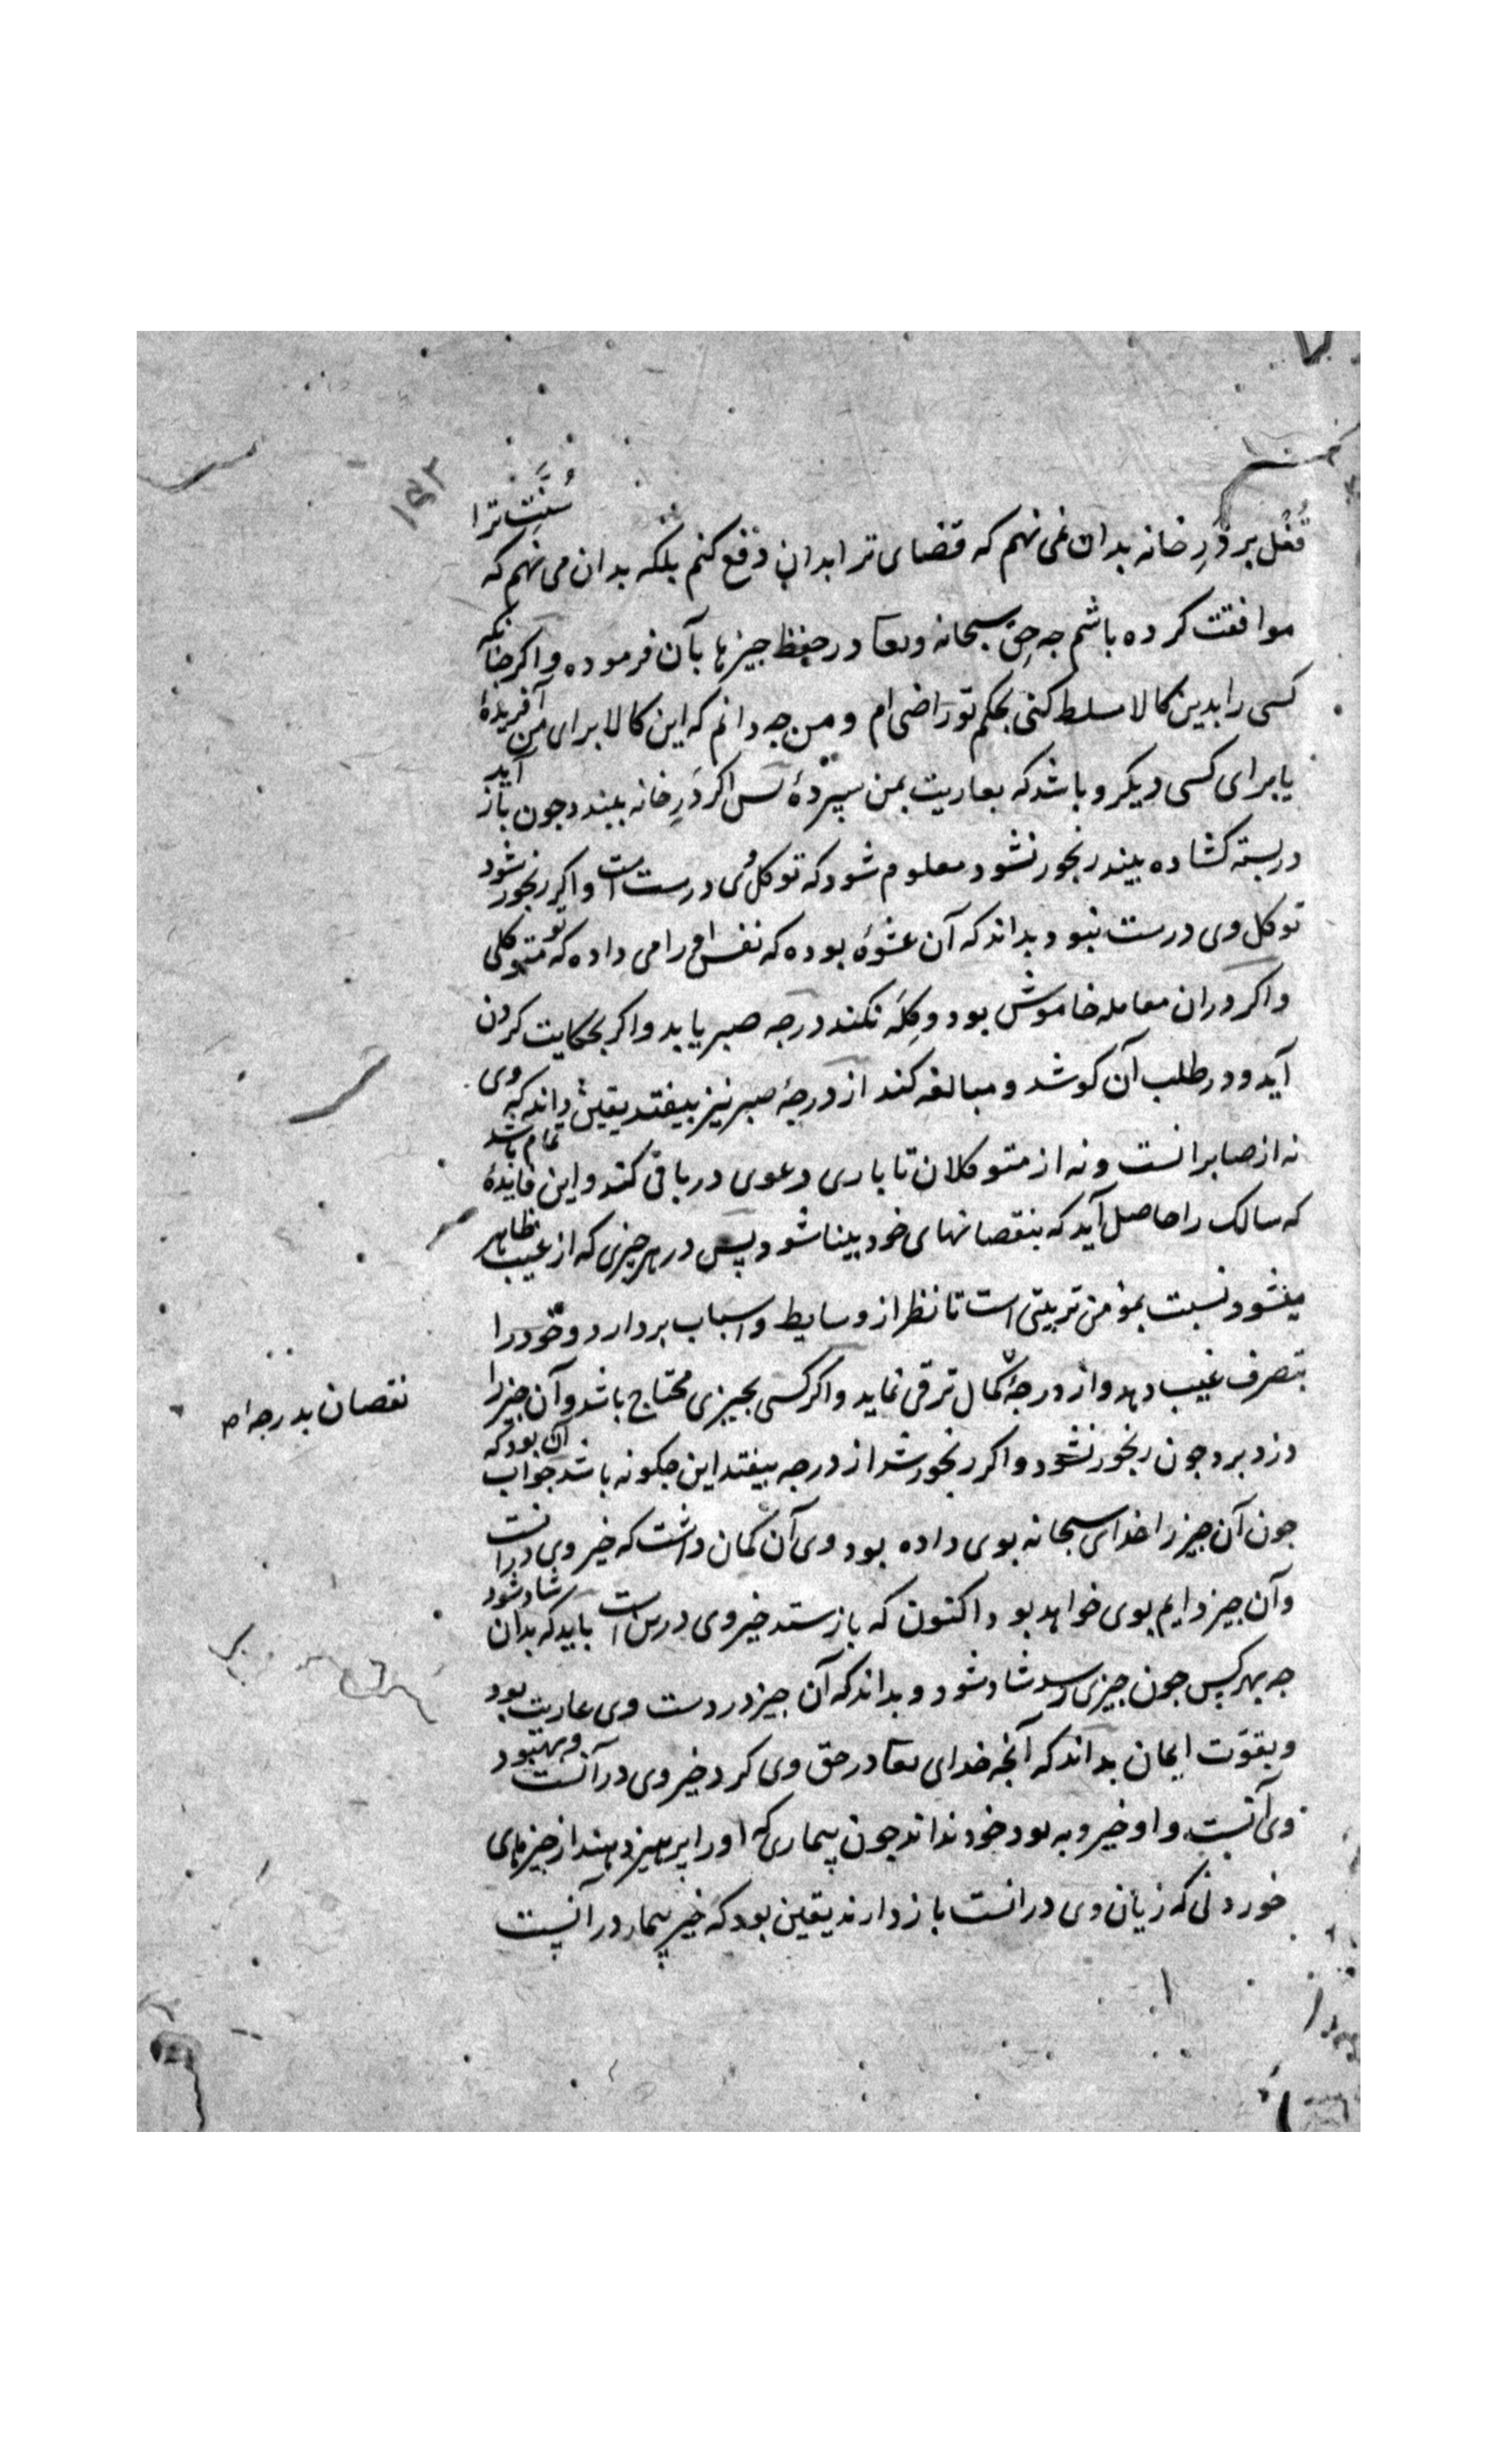 ۱۵۲
قُفْل بر دَرِ خانه بدان نمی نهم که قضای ترا بدان دفع کنم بلکه بدان می نهم که سُنّتِ ترا
موافقت کرده باشم چه حق سبحانه وتعا در حفظ جیزها بآن فرموده و اکر چنانکه
کسی را بدین کالا مسلط کنی بحکم تو راضی ام و من جه دانم که این کالا برای من آفریدهٔ
یا برای کسی دیکر و باشد که بعاریت بمن سپردهٔ پس اکر دَرِ خانه ببندد جون باز آید
در بسته کشاده بیند رنجور نشود معلوم شود که توکل وی درست است و اکر رنجور شود
توکل وی درست نبود بداند که آن عشوهٔ بوده که نفس او را می داده که تو متوکلی
و اکر دران معامله خاموش بود و کِلَه نکند درجه صبر یابد و اکر بحکایت کردن
آید و در طلب آن کوشد و مبالغه کند از درجهٔ صبر نیز بیفتد یقین داند که وی
نه از صابرانست و نه از متوکلان تا باری دعوی در باقی کند و این فایدهٔ تمام باشد
که سالک را حاصل آید که بنقصانهای خود بینا شود پس در هر جیزی که از غیب ظاهر
میشود نسبت بمؤمن تربیتی است تا نظر از وسایط و اسباب بردارد و خود را
بتصرف غیب دهد و از درجهٔ کمال ترقی نماید و اکر کسی بجیزی محتاج باشد و آن جیز را
نقصان بدرجه اه
دزد برد جون رنجور نشود و اکر رنجور شد از درجه بیفتد این جکونه باشد جواب آن بود که
جون آن جیز را خدای سبحانه بوی داده بود وی آن کمان داشت که خیر وی درانست
و آن جیز دایم بوی خواهد بود اکنون که باز ستد خیر وی درین است باید که بدان شاد شود
جه بهر کس جون جیزی رسد شاد شود و بداند که آن جیز در دست وی عاریت بود
و بقوّت ایمان بداند که آنجه خدای تعا در حق وی کرد خیر وی در آنست و بهبود
وی آنست و او خیر و به بود خود نداند جون بیماری که او را پرهیز دهند از جیزهای
خوردنی که زیان وی درانست باز دارند یقین بود که خیر بیمار در آنست